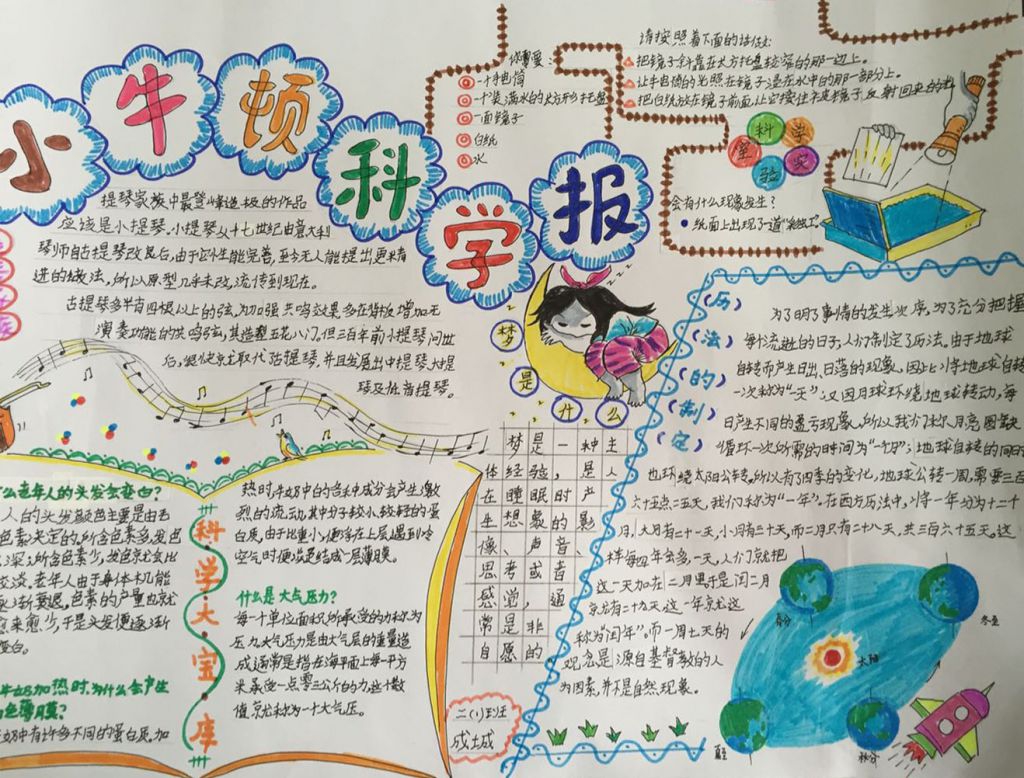 小牛顿科学报
提琴家族中最登峰造极的作品
应该是小提琴。小提琴从十七世纪由意大利
琴师自古提琴改良后,由于它外生能完善,至今无人能提出更精
进的做法,所以原型几乎未改,流传到现在。
古提琴多半有四根以上的弦,为加强共鸣效果多在背板增加无
演奏功能的共鸣弦,其造型五花八门。但三百年前小提琴问世
后,很快就取代古提琴,并且发展出中提琴、大提
琴及低音提琴。
你需要:
一个手电筒
一个装满水的长方形托盘
一面镜子
白纸
水
请按照着下面的话做:
把镜子斜靠在长方托盘较窄的那一边上。
让手电筒的光照在镜子浸在水中的那一部分上。
把白纸放在镜子前面,让它接住从镜子反射回来的
科学实验室
会有什么现象发生?
纸面上出现了一道“彩虹”。
梦是什么
梦是一种主
体经验,是人
在睡眠时产
生想象的影
像、声音、
思考或者
感觉,通
常是非
自愿的
历法的制定
为了明了事情的发生次序,为了充分把握
每个流逝的日子,人们制定了历法。由于地球
自转而产生日出、日落的现象,因此,将地球自转
一次称为“一天”;又因月球环绕地球转动,每
日产生不同的盈亏现象。所以我们称月亮圆缺
循环一次所需的时间为“一个月”;地球自转的同时
也环绕太阳公转。所以有了四季的变化,地球公转一周,需要三百
六十五点二五天,我们称为“一年”。在西方历法中,将一年分为十二个
月,大月有三十一天,小月有三十天,而二月只有二十八天,共三百六十五天。这
样每四年会多一天,人们就把
这一天加在二月里于是闰二月
就有二十九天,这一年就这
称为“闰年”。而一周七天的
观念是源自基督教的人
为因素,并不是自然现象。
春分
冬至
太阳
夏至
秋分
么老年人的头发会变白?
人的头发颜色主要是由毛
色素决定的,所含色素多,发色
深;所含色素少,发色就会比
较淡。老年人由于身体机能
逐渐衰退,色素的产量也就
愈来愈少,于是头发便逐渐
变白。
牛奶加热时,为什么会产生
白色薄膜?
牛奶中有许多不同的蛋白质。加
科学大宝库
热时,牛奶中的各种成分会产生激
烈的流动,其中分子较小、较轻的蛋
白质,由于比重小,便浮在上层,遇到冷
空气时便凝结成一层薄膜。
什么是大气压力?
每一个单位面积所承受的力称为
压力,大气压力是由大气层的重量造
成,通常是指在海平面上每一平方
米承受一点零三公斤的力,这个数
值就称为一个大气压。
二(1)班
成城